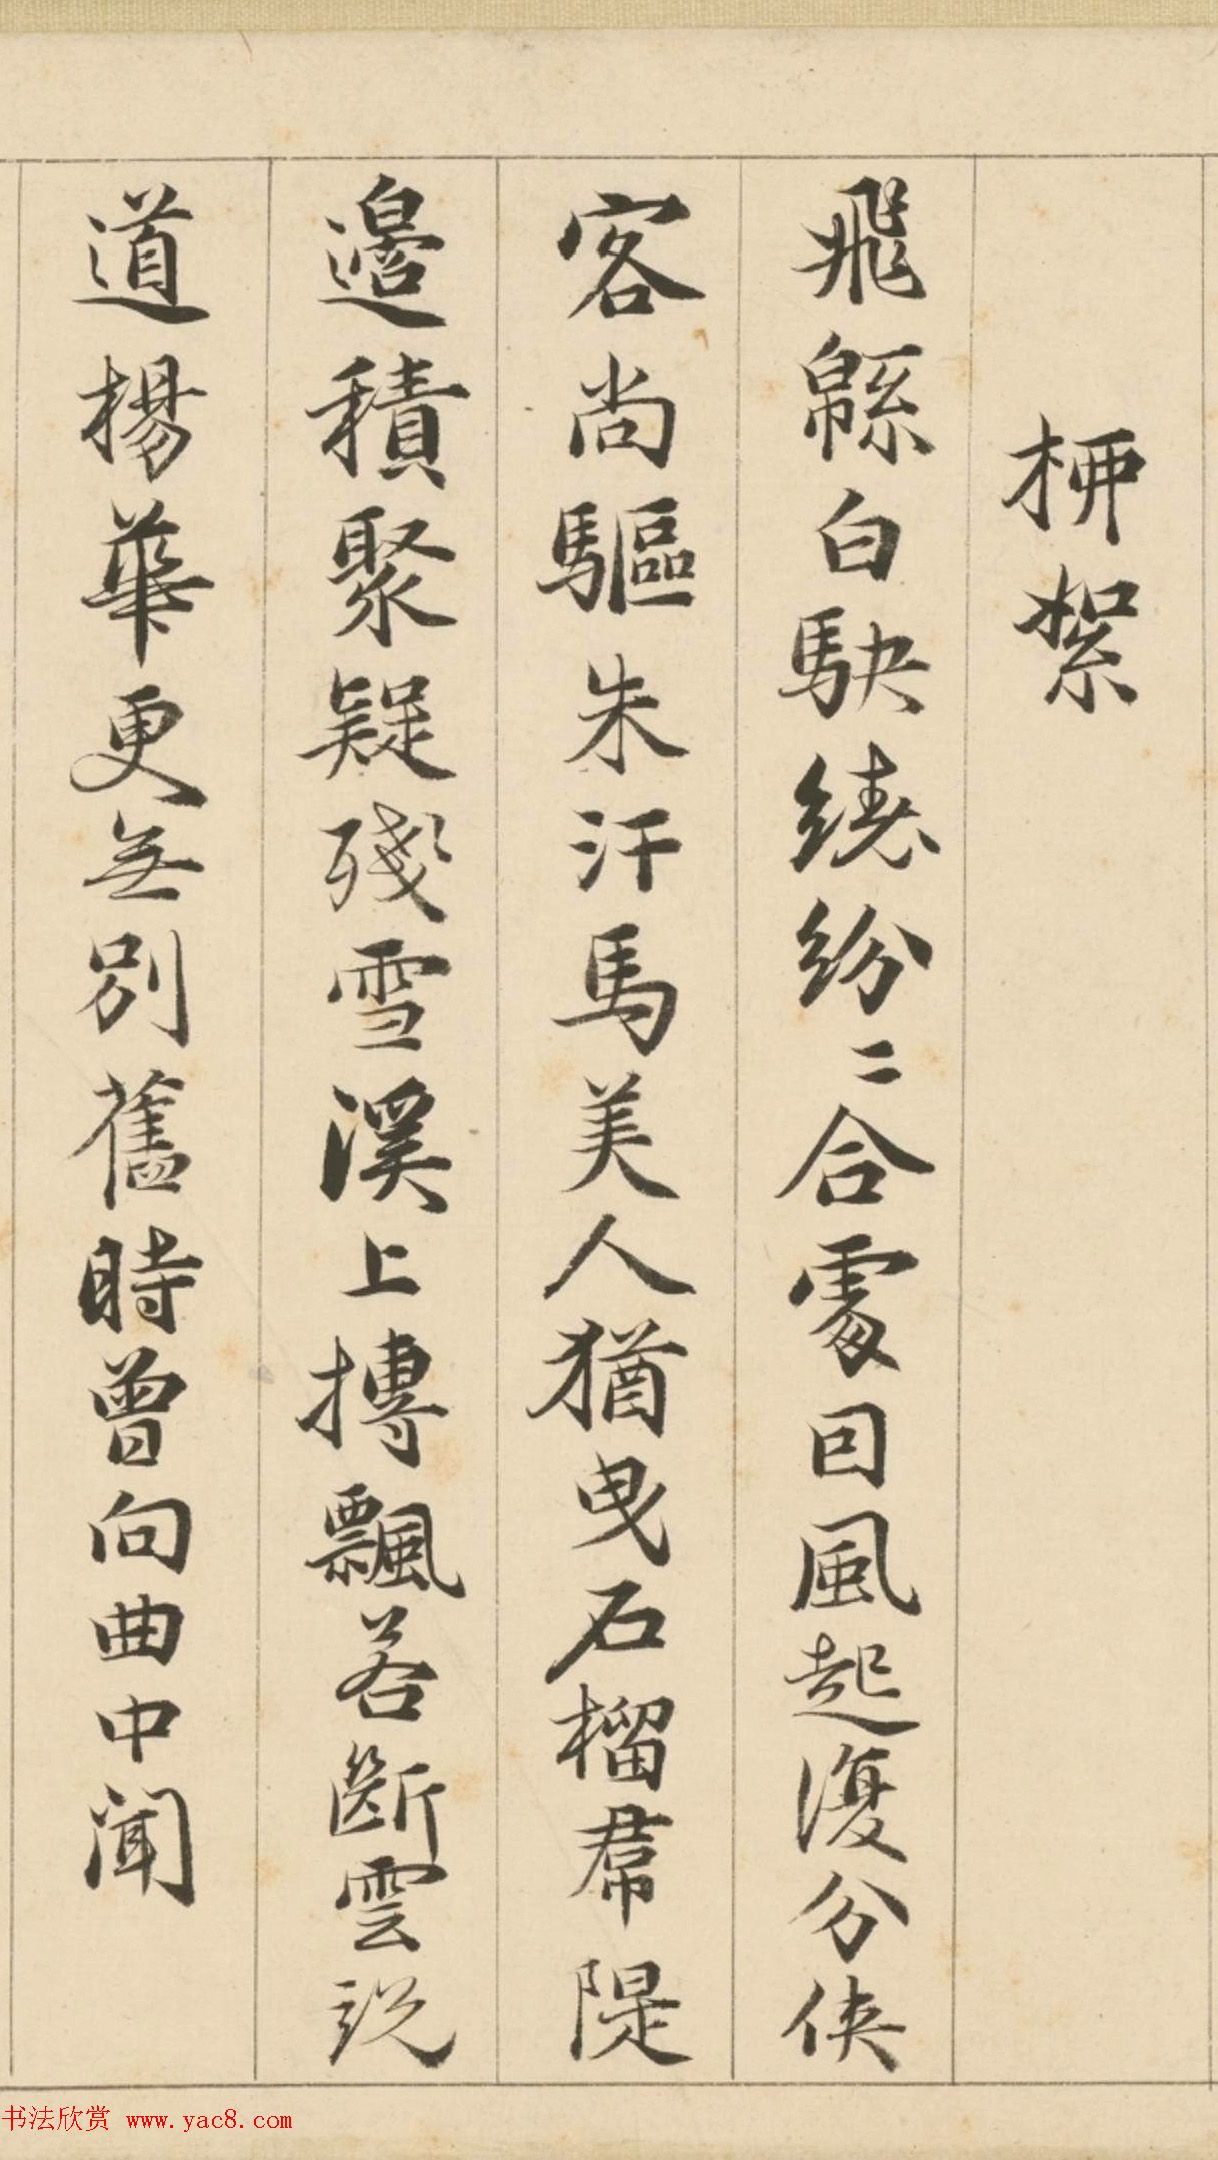 桺絮
飛緜白駚繞紛〻合處回風起復分俠
客尚驅朱汗馬美人猶曳石榴帬隄
邉積聚疑殘雪溪上摶飄若斷雲説
道楊華更無別舊時曾向曲中聞
书法欣赏 www.yac8.com